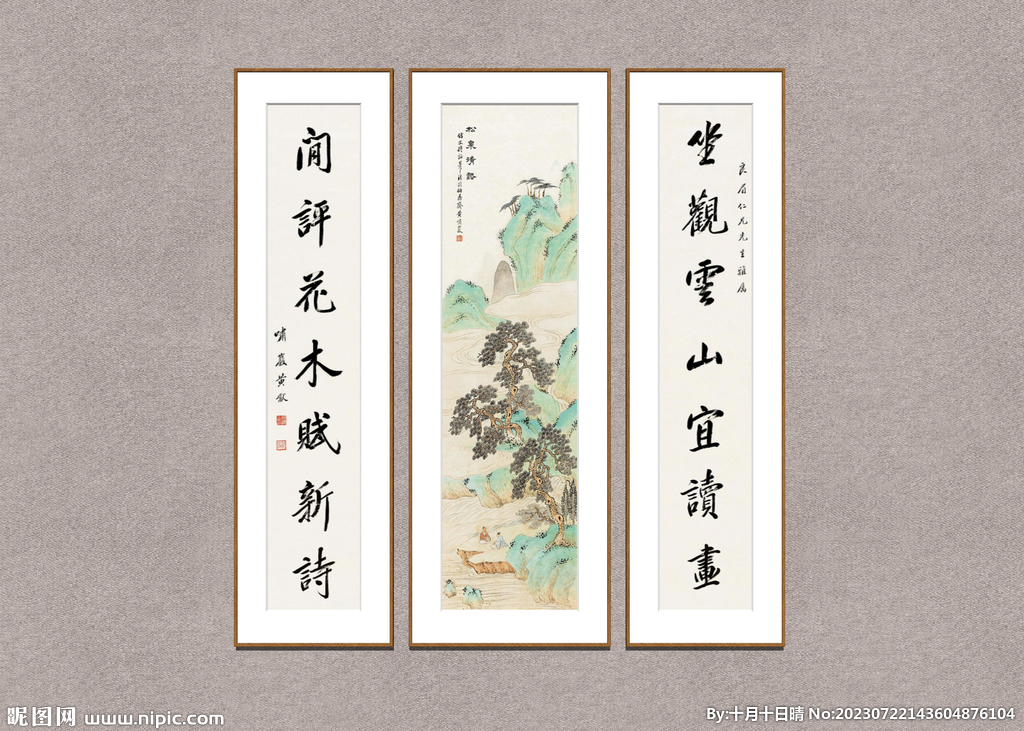 坐觀雲山宜讀畫
良眉仁兄先生雅属
松泉清話
閒評花木賦新詩
啸巖黄鈙
昵图网 www.nipic.com
By:十月十日晴 No:20230722143604876104